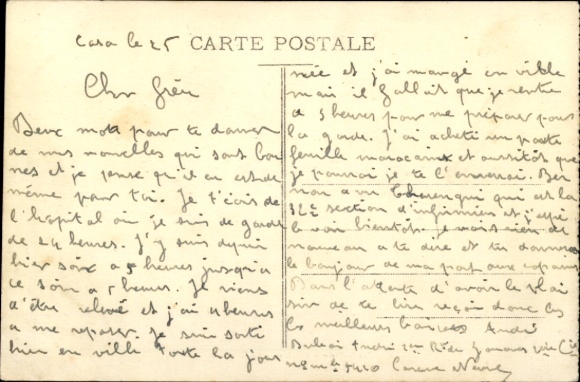 Casa le 25
CARTE POSTALE
Cher frère
Deux mots pour te donner
de mes nouvelles qui sont bon
nes et je pense qu'il en est de
même pour toi. Je t'écris de
l'hopital où je suis de garde
de 24 heures. J'y suis depuis
hier soir a 5 heures jusqu'a
ce soir a 5 heures. Je viens
d'être relevé et j'ai 4 heures
a me reposer. Je suis sorti
hier en ville toute la jour
née et j'ai mangé en ville
mais il fallait que je rentre
a 5 heures pour me préparer pour
la garde. J'ai acheté un porte
feuille marocain et aussitôt que
je pourrai je te l'enverrai. Ber
non a vu qui est la
32e section d'infirmiers et j'espère
le voir bientôt. Je vois rien de
nouveau a te dire et tu donneras
le bonjour de ma part aux copains
Dans l'attente d'avoir le plai
sir de te lire reçoit donc les
les meilleurs baisers André
André 2me Rég de Zouaves Cie